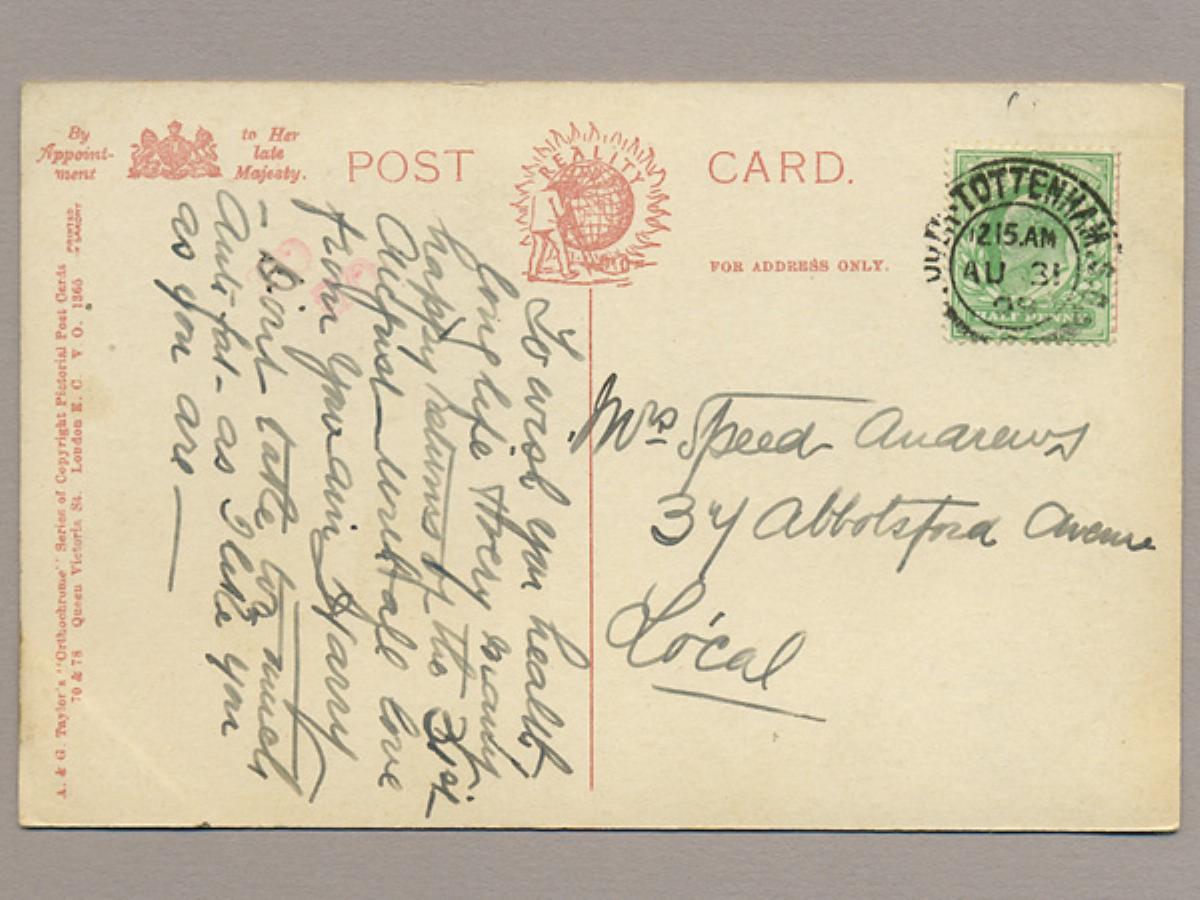 By
Appoint-
ment
to Her
late
Majesty.
POST CARD.
REALITY
FOR ADDRESS ONLY.
SOUTH TOTTENHAM S.O.
12.15.AM
AU 31
HALF PENNY
A. & G. Taylor's "Orthochrome" Series of Copyright Pictorial Post Cards
70 & 78 Queen Victoria St. London E. C. V O. 1365
PRINTED
IN SAXONY
To wish you health,
long life & very many
happy returns of the 31st
August with all love
from Harry
- Don't take too much
Anti-fat - as I like you
as you are
Mrs Speed Andrews
37 Abbotsford Avenue
Local